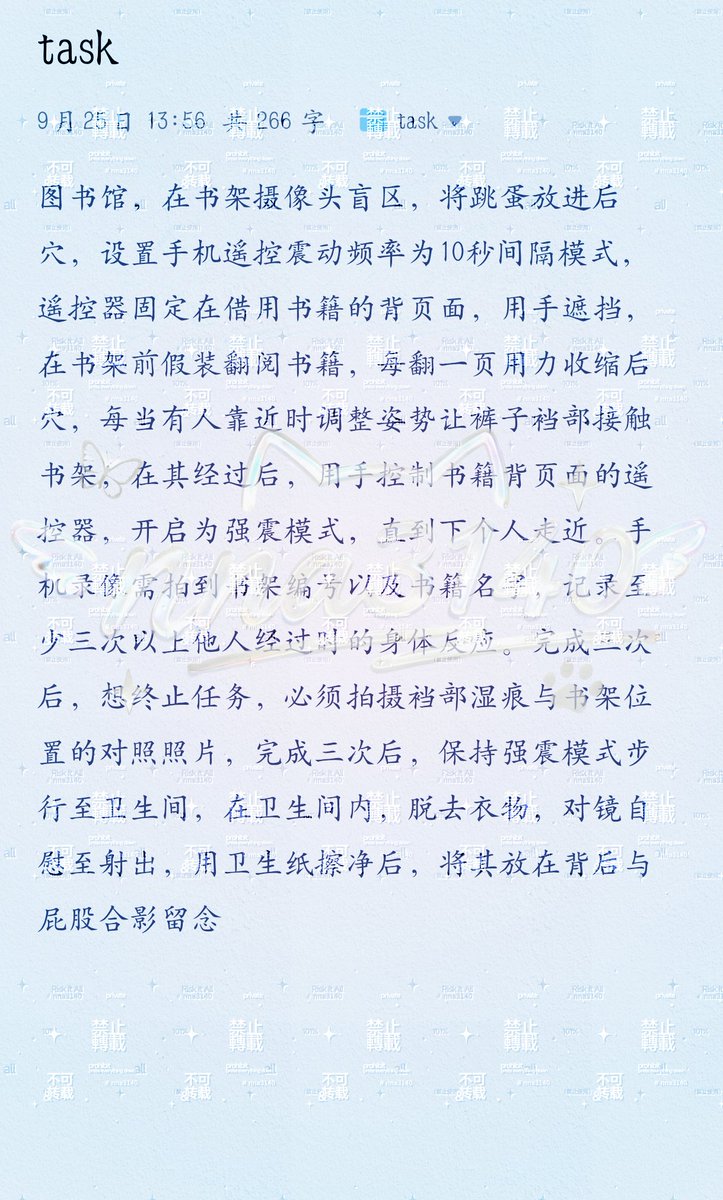 task
9月25日 13:56 共 266 字 task
图书馆，在书架摄像头盲区，将跳蛋放进后
穴，设置手机遥控震动频率为10秒间隔模式，
遥控器固定在借用书籍的背页面，用手遮挡，
在书架前假装翻阅书籍，每翻一页用力收缩后
穴，每当有人靠近时调整姿势让裤子裆部接触
书架，在其经过后，用手控制书籍背页面的遥
控器，开启为强震模式，直到下个人走近。手
机录像需拍到书架编号以及书籍名字，记录至
少三次以上他人经过时的身体反应。完成三次
后，想终止任务，必须拍摄裆部湿痕与书架位
置的对照照片，完成三次后，保持强震模式步
行至卫生间，在卫生间内，脱去衣物，对镜自
慰至射出，用卫生纸擦净后，将其放在背后与
屁股合影留念
nna3140
Risk It All
nna3140
private
禁止
轉載
prohibit
#nna3140
不可
转载
all
101%
(禁止使用)